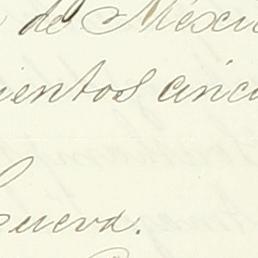 de Méxi
ientos cinc
gueva.